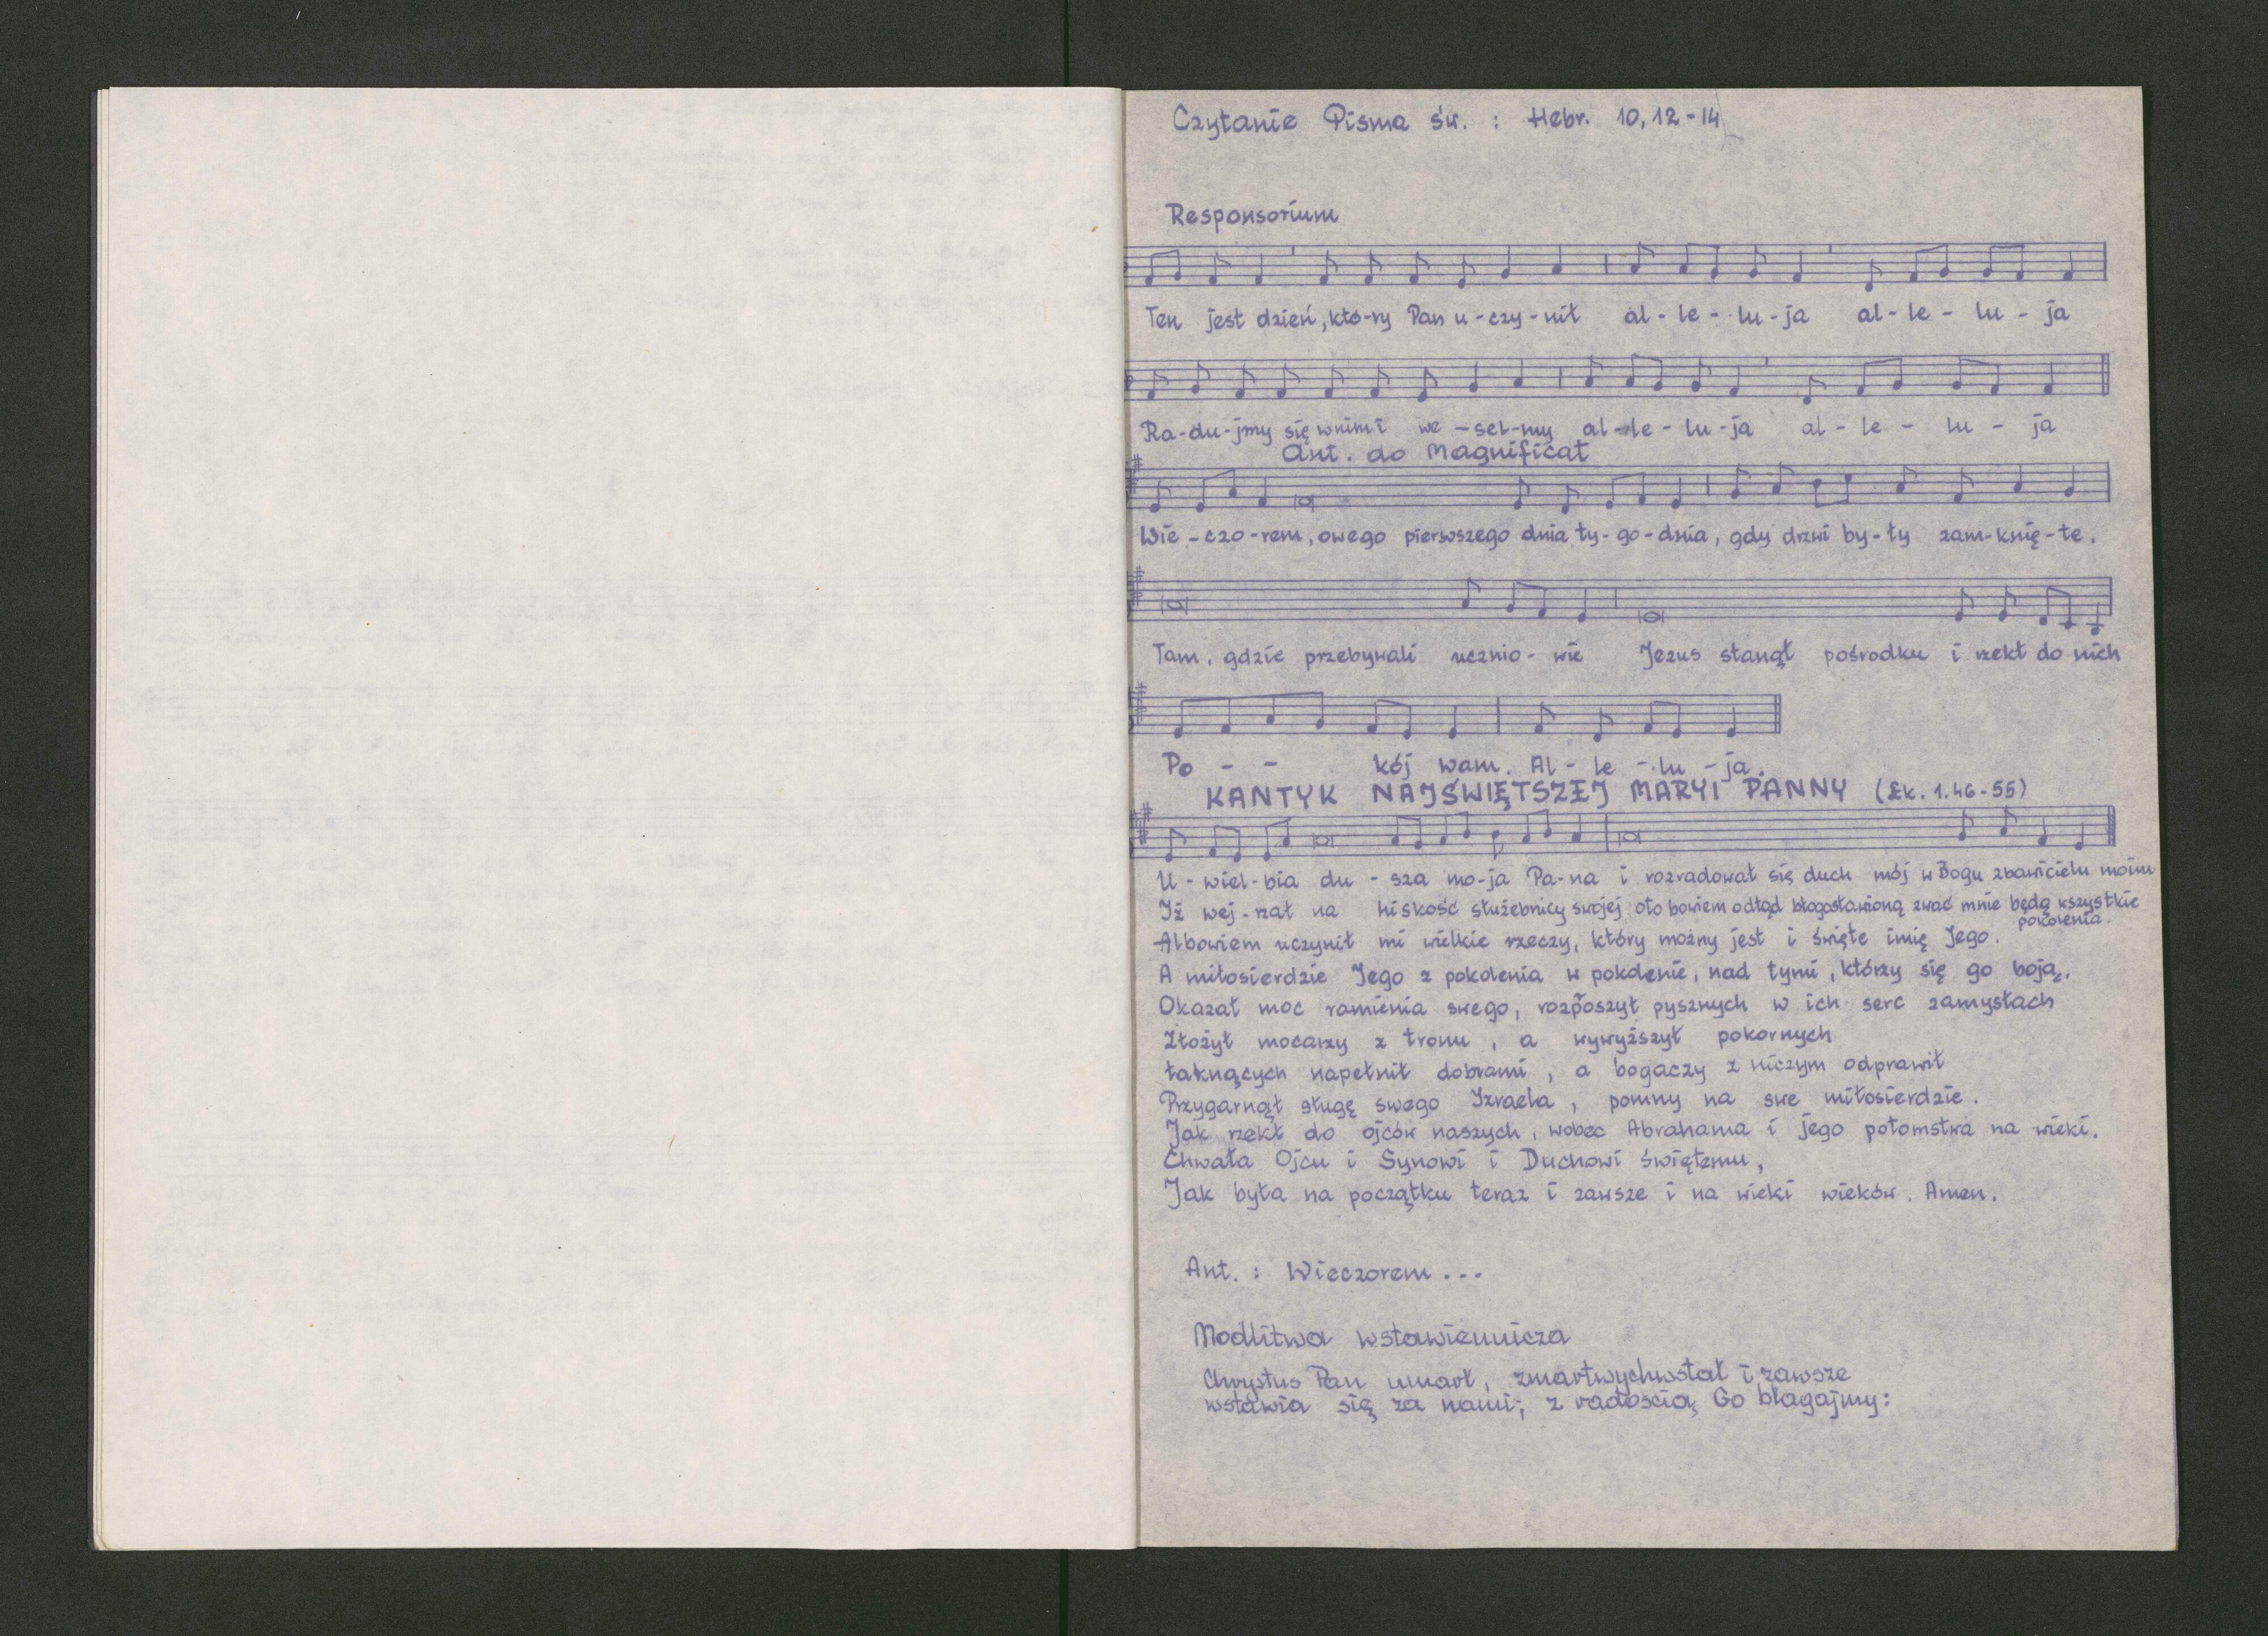 Czytanie Pisma św. : Hebr. 10,12-14
Responsorium
Ten jest dzień, któ-ry Pan u-czy-nił al-le-lu-ja al-le-lu-ja
Ra-du-jmy się w nim i we-sel-my al-le-lu-ja al-le-lu-ja
Ant. do Magnificat
Wie-czo-rem, owego pierwszego dnia ty-go-dnia, gdy drzwi by-ły zam-knię-te.
Tam, gdzie przebywali ucznio-wie Jezus stanął pośrodku i rzekł do nich
Po - - kój wam. Al-le-lu-ja.
KANTYK NAJŚWIĘTSZEJ MARYI PANNY (Łk. 1.46-55)
U-wiel-bia du-sza mo-ja Pa-na i rozradował się duch mój w Bogu zbawicielu moim
Iż wej-rzał na niskość służebnicy swojej oto bowiem odtąd błogosławioną zwać mnie będą wszystkie
pokolenia.
Albowiem uczynił mi wielkie rzeczy, który możny jest i święte imię Jego.
A miłosierdzie Jego z pokolenia w pokolenie, nad tymi, którzy się go boją.
Okazał moc ramienia swego, rozproszył pysznych w ich serc zamysłach
Złożył mocarzy z tronu, a wywyższył pokornych
łaknących napełnił dobrami, a bogaczy z niczym odprawił
Przygarnął sługę swego Izraela, pomny na swe miłosierdzie.
Jak rzekł do ojców naszych, wobec Abrahama i jego potomstwa na wieki.
Chwała Ojcu i Synowi i Duchowi świętemu,
Jak była na początku teraz i zawsze i na wieki wieków. Amen.
Ant. : Wieczorem...
Modlitwa wstawiennicza
Chrystus Pan umarł, zmartwychwstał i zawsze
wstawia się za nami; z radością Go błagajmy: